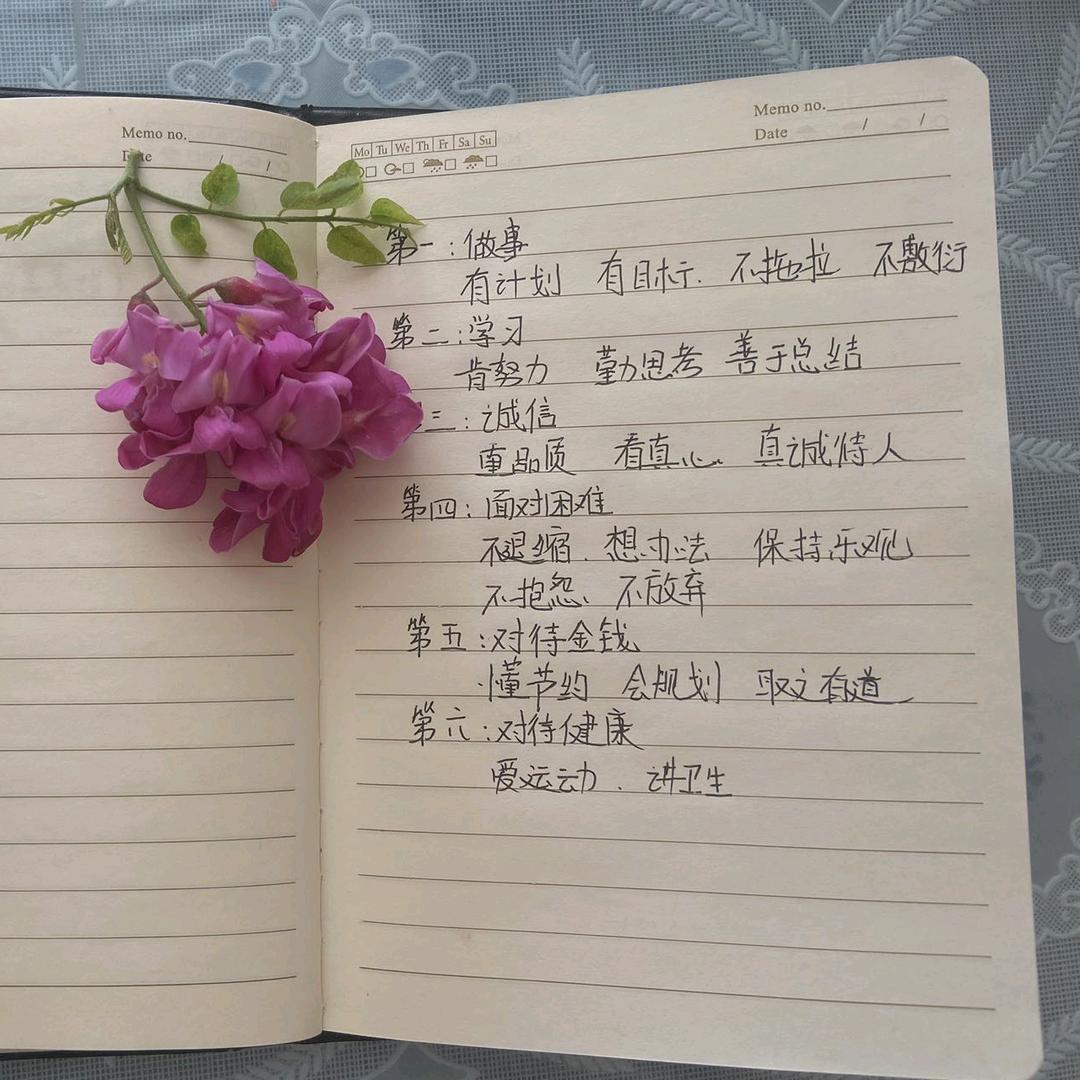 Memo no.
Date / /
Mo Tu We Th Fr Sa Su
Memo no.
Date / /
第一：做事
有计划 有目标. 不拖拉 不敷衍
第二：学习
肯努力 勤思考 善于总结
三：诚信
重品质 看真心. 真诚待人
第四：面对困难
不退缩. 想办法 保持乐观
不抱怨、不放弃
第五：对待金钱
懂节约 会规划 取之有道
第六：对待健康
爱运动. 讲卫生